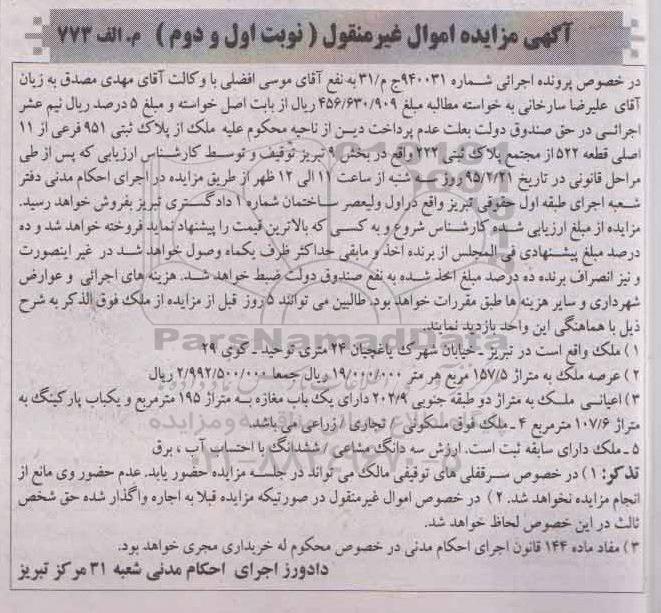 آگهی مزایده اموال غیرمنقول ( نوبت اول و دوم ) م. الف ۷۷۳
در خصوص پرونده اجرائی شماره ۹۴۰۰۳۱ج م/۳۱ به نفع آقای موسی افضلی با وکالت آقای مهدی مصدق به زیان
آقای علیرضا سارخانی به خواسته مطالبه مبلغ ۴۵۶/۶۳۰/۹۰۹ ریال از بابت اصل خواسته و مبلغ ۵ درصد ریال نیم عشر
اجرائی در حق صندوق دولت بعلت عدم پرداخت دین از ناحیه محکوم علیه ملک از پلاک ثبتی ۹۵۱ فرعی از ۱۱
اصلی قطعه ۵۲۲ از مجتمع پلاک ثبتی ۲۲۳ واقع در بخش ۹ تبریز توقیف و توسط کارشناس ارزیابی که پس از طی
مراحل قانونی در تاریخ ۹۵/۲/۲۱ روز سه شنبه از ساعت ۱۱ الی ۱۲ ظهر از طریق مزایده در اجرای احکام مدنی دفتر
شعبه اجرای طبقه اول حقوقی تبریز واقع دراول ولیعصر ساختمان شماره ۱ دادگستری تبریز بفروش خواهد رسید.
مزایده از مبلغ ارزیابی شده کارشناس شروع و به کسی که بالاترین قیمت را پیشنهاد نماید فروخته خواهد شد و ده
درصد مبلغ پیشنهادی فی المجلس از برنده اخذ و مابقی حداکثر ظرف یکماه وصول خواهد شد در غیر اینصورت
و نیز انصراف برنده ده درصد مبلغ اخذ شده به نفع صندوق دولت ضبط خواهد شد. هزینه های اجرائی و عوارض
شهرداری و سایر هزینه ها طبق مقررات خواهد بود. طالبین می توانند ۵ روز قبل از مزایده از ملک فوق الذکر به شرح
ذیل با هماهنگی این واحد بازدید نمایند.
۱) ملک واقع است در تبریز ـ خیابان شهرک یاغچیان ۲۴ متری توحید ـ کوی ۲۹
۲) عرصه ملک به متراژ ۱۵۷/۵ مربع هر متر ۱۹/۰۰۰/۰۰۰ ریال جمعا ۲/۹۹۲/۵۰۰/۰۰۰ ریال
۳) اعیانی ملک به متراژ دو طبقه جنوبی ۲۰۲/۹ دارای یک باب مغازه به متراژ ۱۹۵ مترمربع و یکباب پارکینگ به
متراژ ۱۰۷/۶ مترمربع ۴ ـ ملک فوق مسکونی / تجاری / زراعی می باشد.
۵ ـ ملک دارای سابقه ثبت است. ارزش سه دانگ مشاعی / ششدانگ با احتساب آب ، برق
تذکر: ۱) در خصوص سرقفلی های توقیفی مالک می تواند در جلسه مزایده حضور یابد. عدم حضور وی مانع از
انجام مزایده نخواهد شد. ۲) در خصوص اموال غیرمنقول در صورتیکه مزایده قبلا به اجاره واگذار شده حق شخص
ثالث در این خصوص لحاظ خواهد شد.
۳) مفاد ماده ۱۴۴ قانون اجرای احکام مدنی در خصوص محکوم له خریداری مجری خواهد بود.
دادورز اجرای احکام مدنی شعبه ۳۱ مرکز تبریز
ParsNamadData